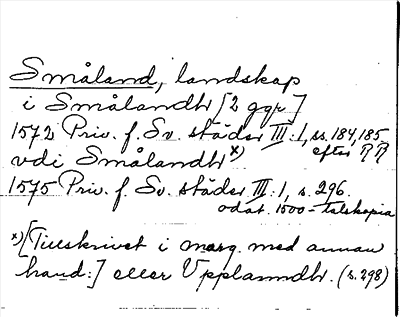 Småland, landskap
i Smålandh [2 ggr]
1572 Priv. f. Sv. städer III:1, ss. 184, 185
efter RR
vdi Smålandh x)
1575 Priv. f. Sv. städer III:1, s. 296.
odat. 1500-talskopia
x) [Tillskrivet i marg. med annan
hand:] eller Vpplanndh. (s. 298)